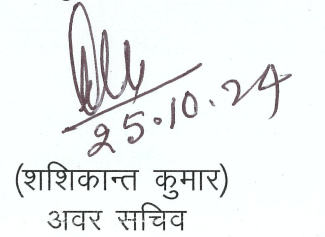 25.10.24
(शशिकान्त कुमार)
अवर सचिव